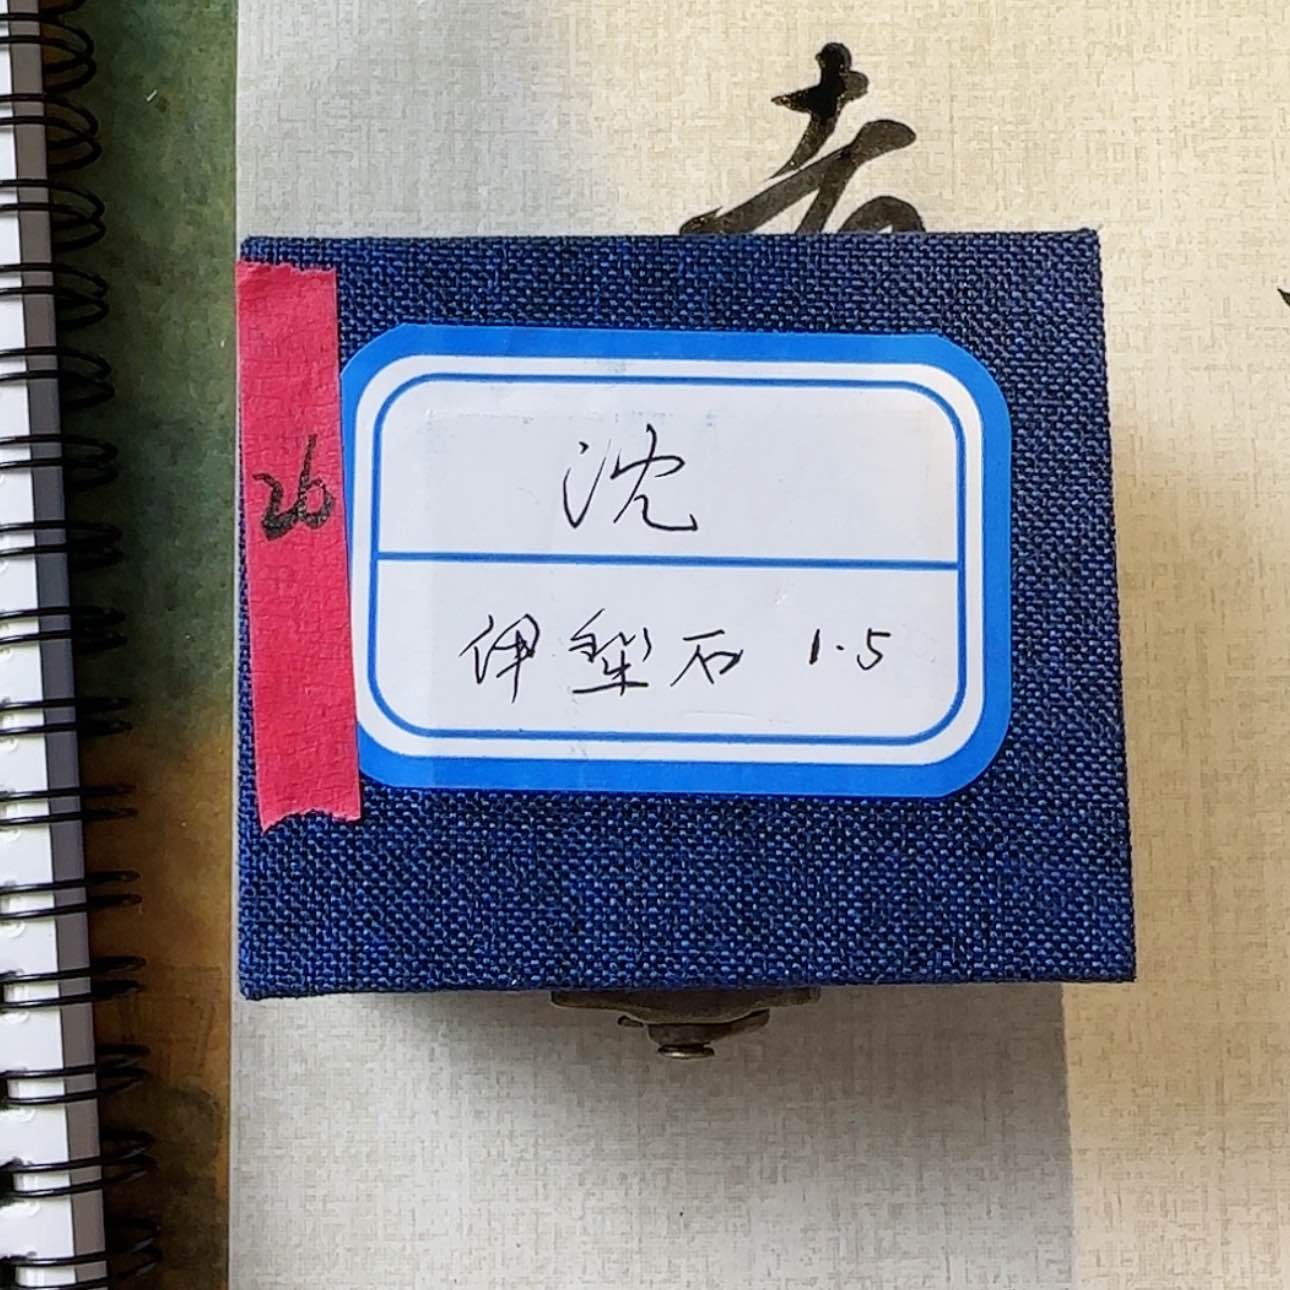 26
沈
伊犁石 1.5